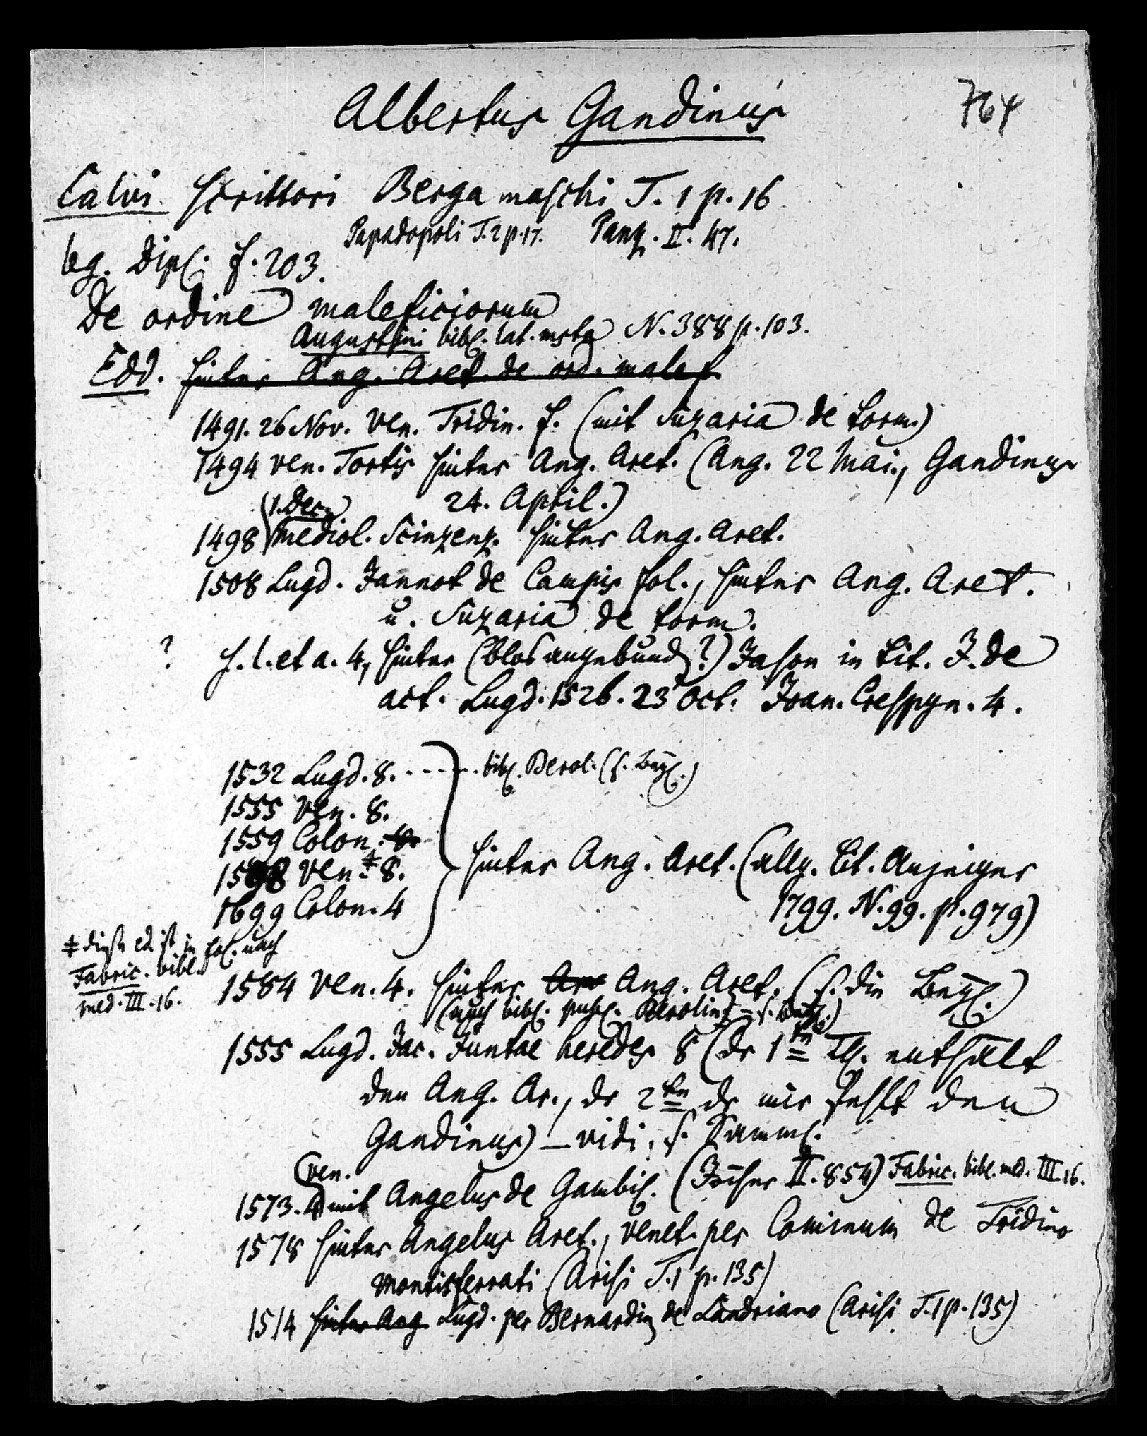 Albertus Gandinus
764
Calvi Scrittori Bergamaschi T. 1 p. 16
Papadopoli T. 2 p. 17. Panz. II. 47.
bg. Dipl. f. 203.
De ordine maleficiorum
Augustini bibl. lat. msta N. 388 p. 103.
Edd. hinter Ang. Aret. de ord. malef
1491. 26 Nov. Ven. Tridin. f. (mit Suzaria de torm.)
1494 Ven. Tortis hinter Ang. Aret. (Ang. 22 Mai., Gandinus
24. April.)
(1. Dec.
1498 Mediol. Scinzenz. hinter Ang. Aret.
1508 Lugd. Jannot de Campis fol., hinter Ang. Aret.
u. Suzaria de torm.
? s. l. et a. 4, hinter (blos angebund ?) Jason in tit. J. de
act. Lugd. 1526. 23 Oct. Joan. Crespyn. 4.
1532 Lugd. 8. - - - - - bibl. Berol. (s. Beyl.)
1555 Ven. 8.
1559 Colon. 8.
1598 Ven ‡ 8.
1699 Colon. 4
hinter Ang. Aret. (allg. lit. Anzeiger
1799. N. 99. p. 979)
‡ diese ed ist in fol. nach
Fabric. bibl.
med. III. 16.
1584 Ven. 4. hinter Are Ang. Aret. (s. die Beyl.)
(auch bibl. Berolin. = s. Beyl.)
1555 Lugd. Jac. Juntae heredes 8 (der 1te Th. enthält
den Ang. Ar., der 2te der mir fehlt den
Gandinus) — vidi, s. Samml.
(Ven.
1573. 4) mit Angelus de Gambil. (Jöcher II. 854) Fabric. bibl. med. III. 16.
1578 hinter Angelus Aret., Venet. per Cominum de Tridino
Montisferrati (Arisi T. 1 p. 135)
1514 hinter Ang Lugd. per Bernardin de Landriano (Arisi T. 1 p. 135)